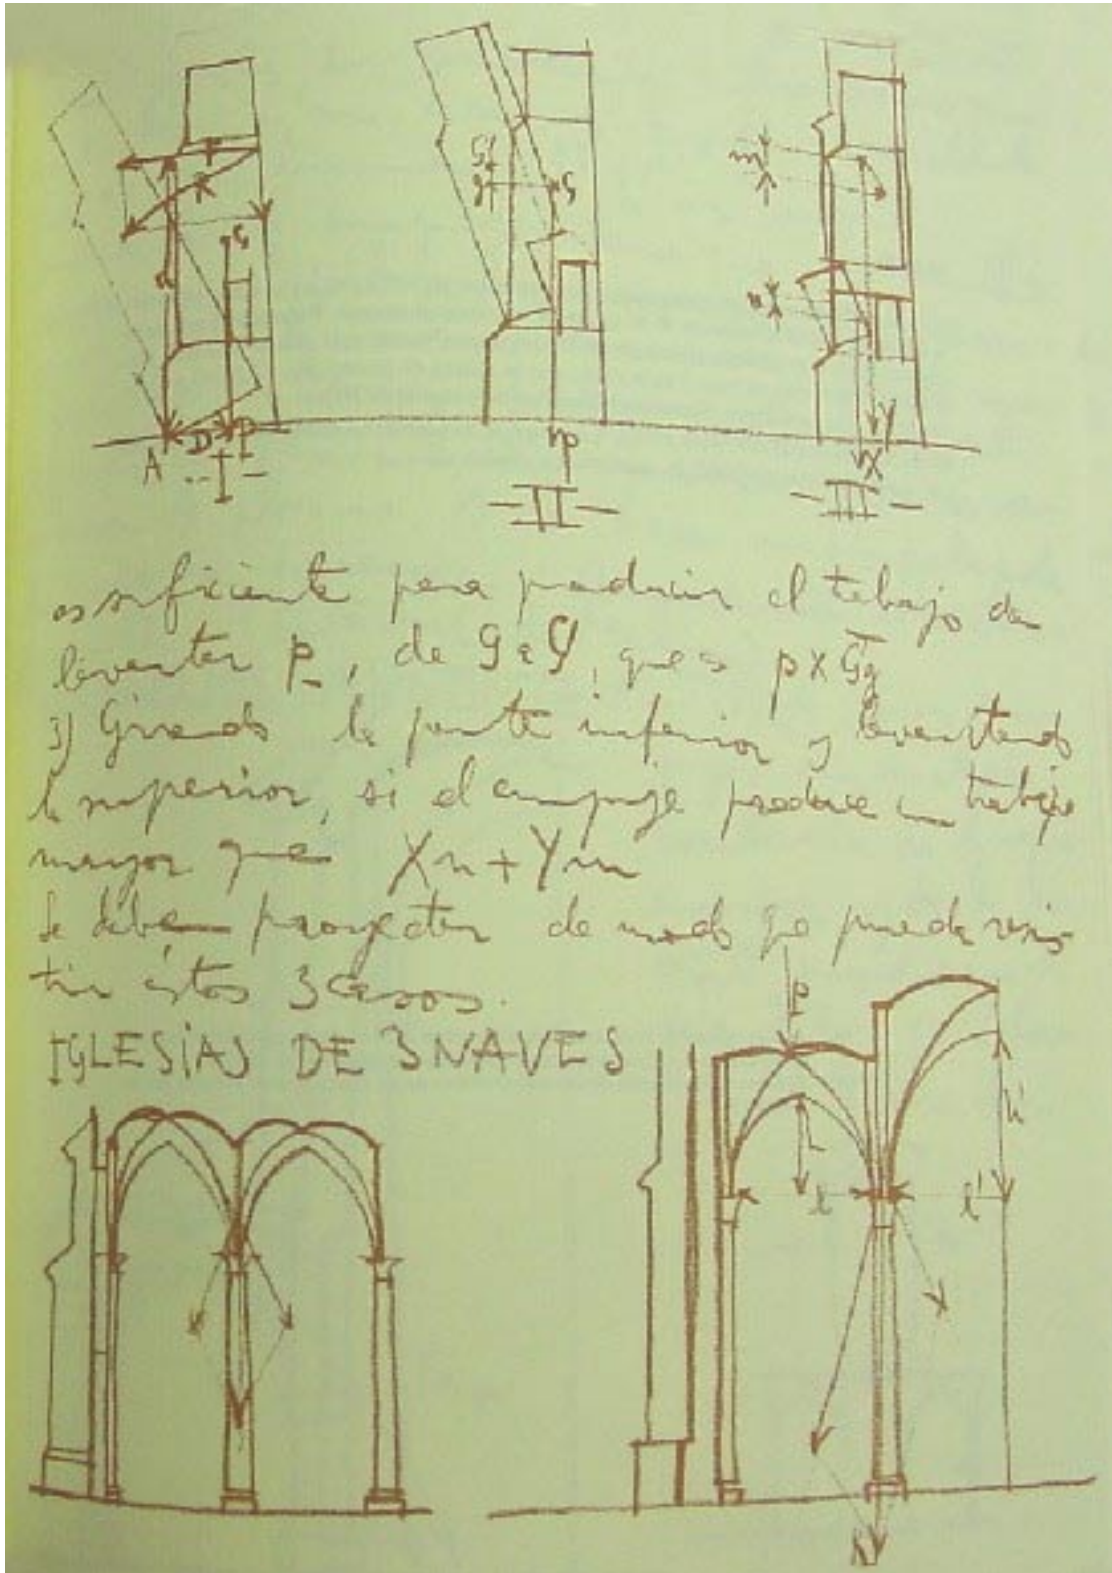 m
G
g
G
G
F
h
n
A
D
P
p
X
Y
I
II
III
es suficiente para producir el trabajo de
levantar p, de g a G, que es p x Gg
3) Girando la parte inferior y levantando
la superior, si el empuje produce un trabajo
mayor que Xn + Ym
Se debe proyectar de modo que pueda resis-
tir éstos 3 casos.
IGLESIAS DE 3 NAVES
P
h'
l
l'